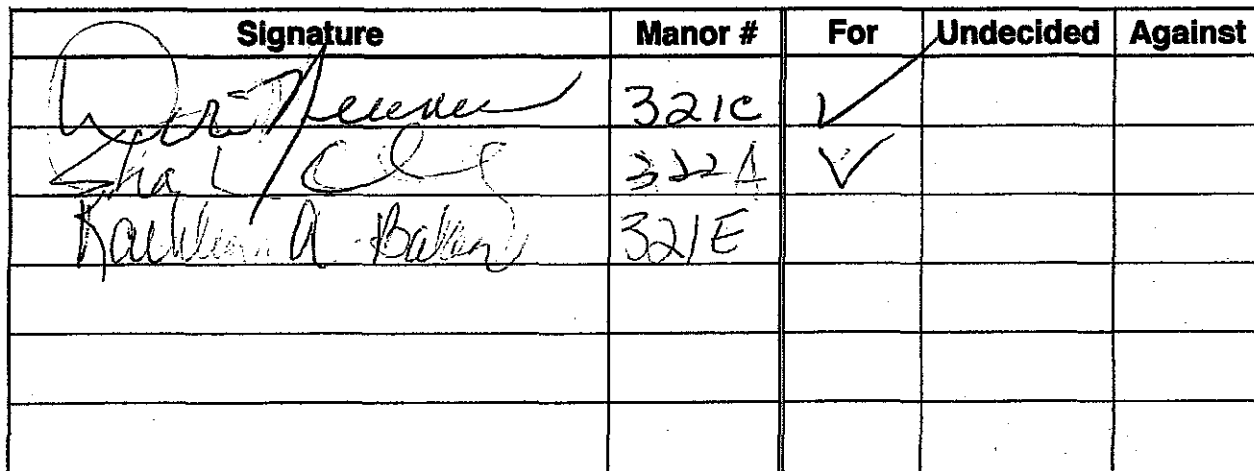 Signature Manor # For Undecided Against
321C ✓
322A ✓
Kathleen A. Baker 321E